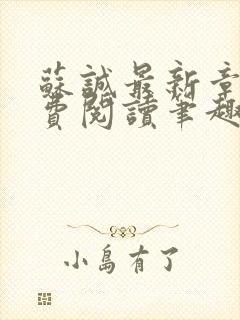 蘇誠最新章
費閱讀筆趣
小島有了